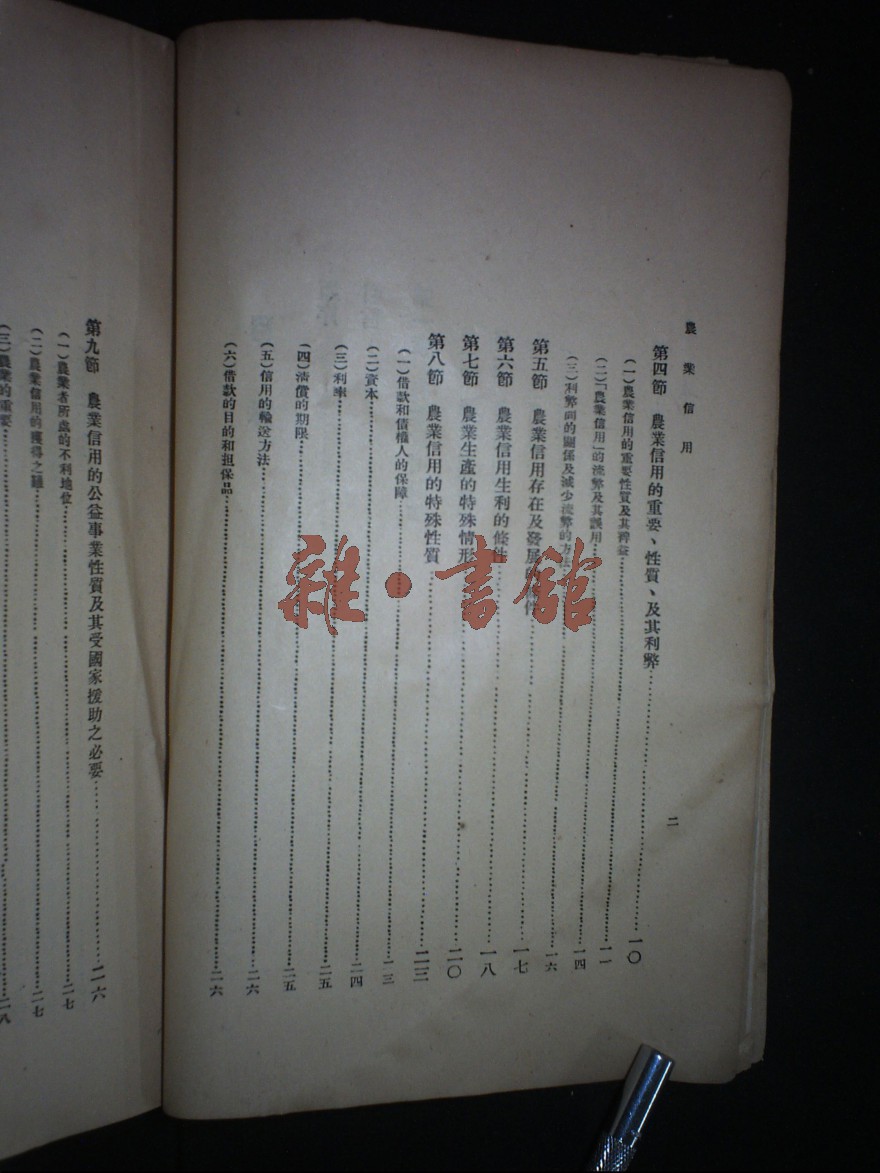 農業信用
二
第四節　農業信用的重要、性質、及其利弊……一〇
(一)農業信用的重要性質及其裨益……一一
(二)「農業信用」的流弊及其誤用……一四
(三)利弊間的關係及減少流弊的方法……一六
第五節　農業信用存在及發展 件……一七
第六節　農業信用生利的條件……一八
第七節　農業生產的特殊情形……二〇
第八節　農業信用的特殊性質……二三
(一)借款和債權人的保障……二三
(二)資本……二四
(三)利率……二五
(四)清償的期限……二五
(五)信用的輸送方法……二六
(六)借款的目的和担保品……二六
第九節　農業信用的公益事業性質及其受國家援助之必要……二六
(一)農業者所處的不利地位……二七
(二)農業信用的獲得之難……二七
(三)農業的重要……二八
雜·書館